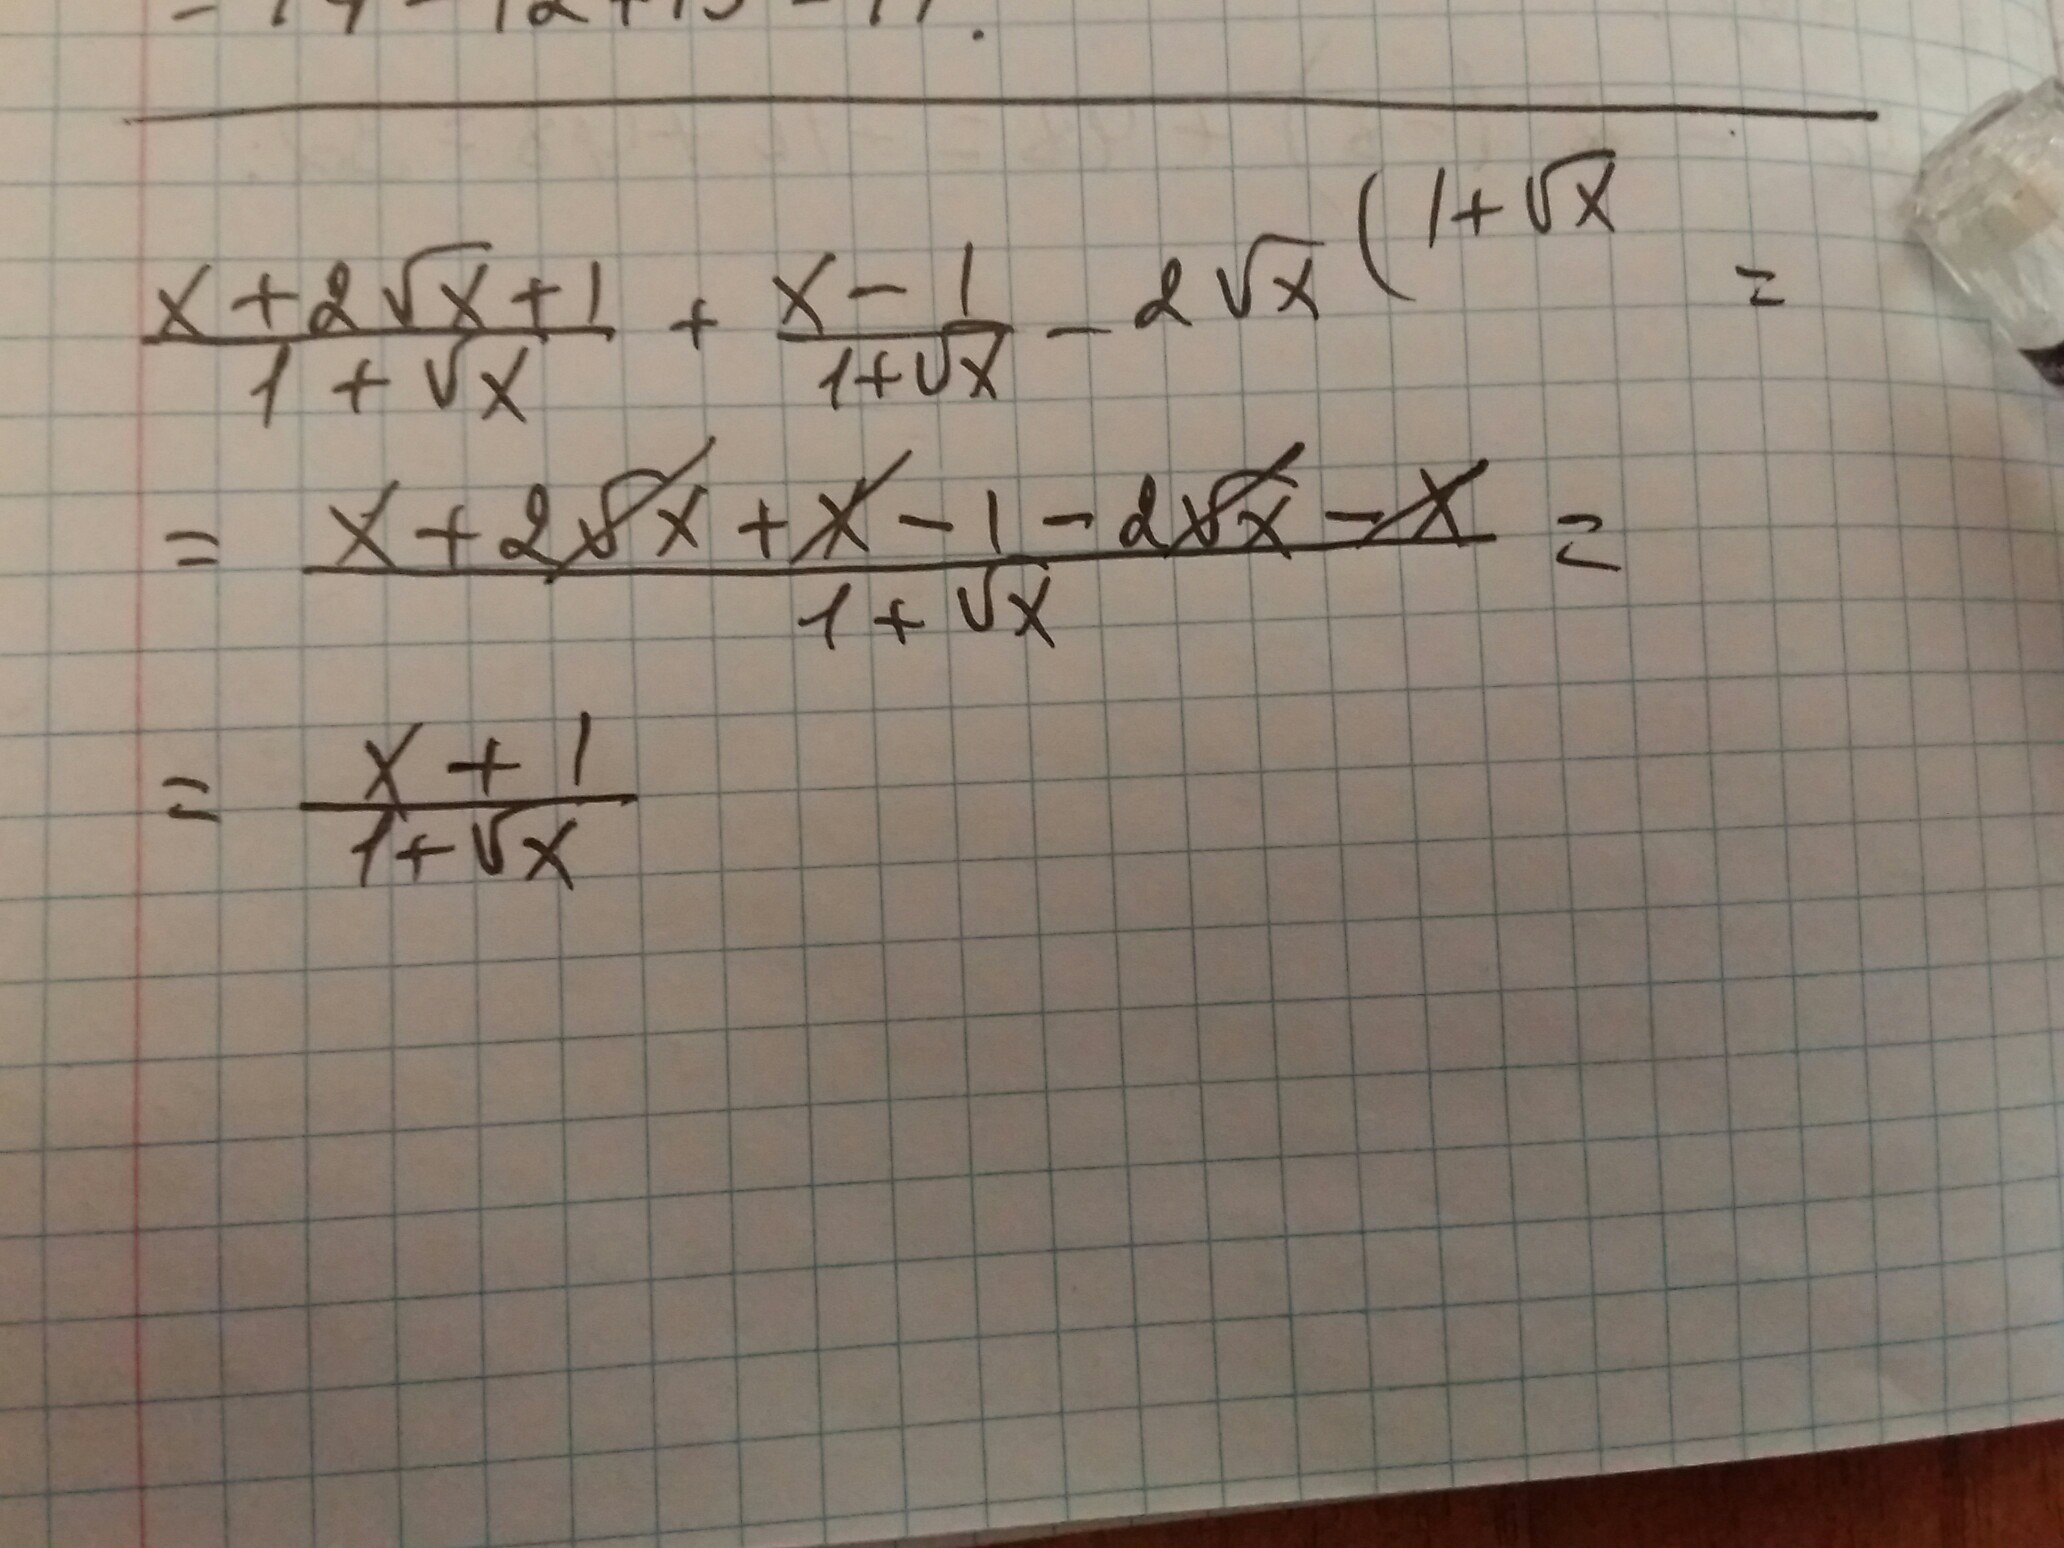 x + 2√x + 1 / 1 + √x + x - 1 / 1+√x - 2√x (1+√x =
= x + 2√x + x - 1 - 2√x - x / 1 + √x =
= x + 1 / 1+√x